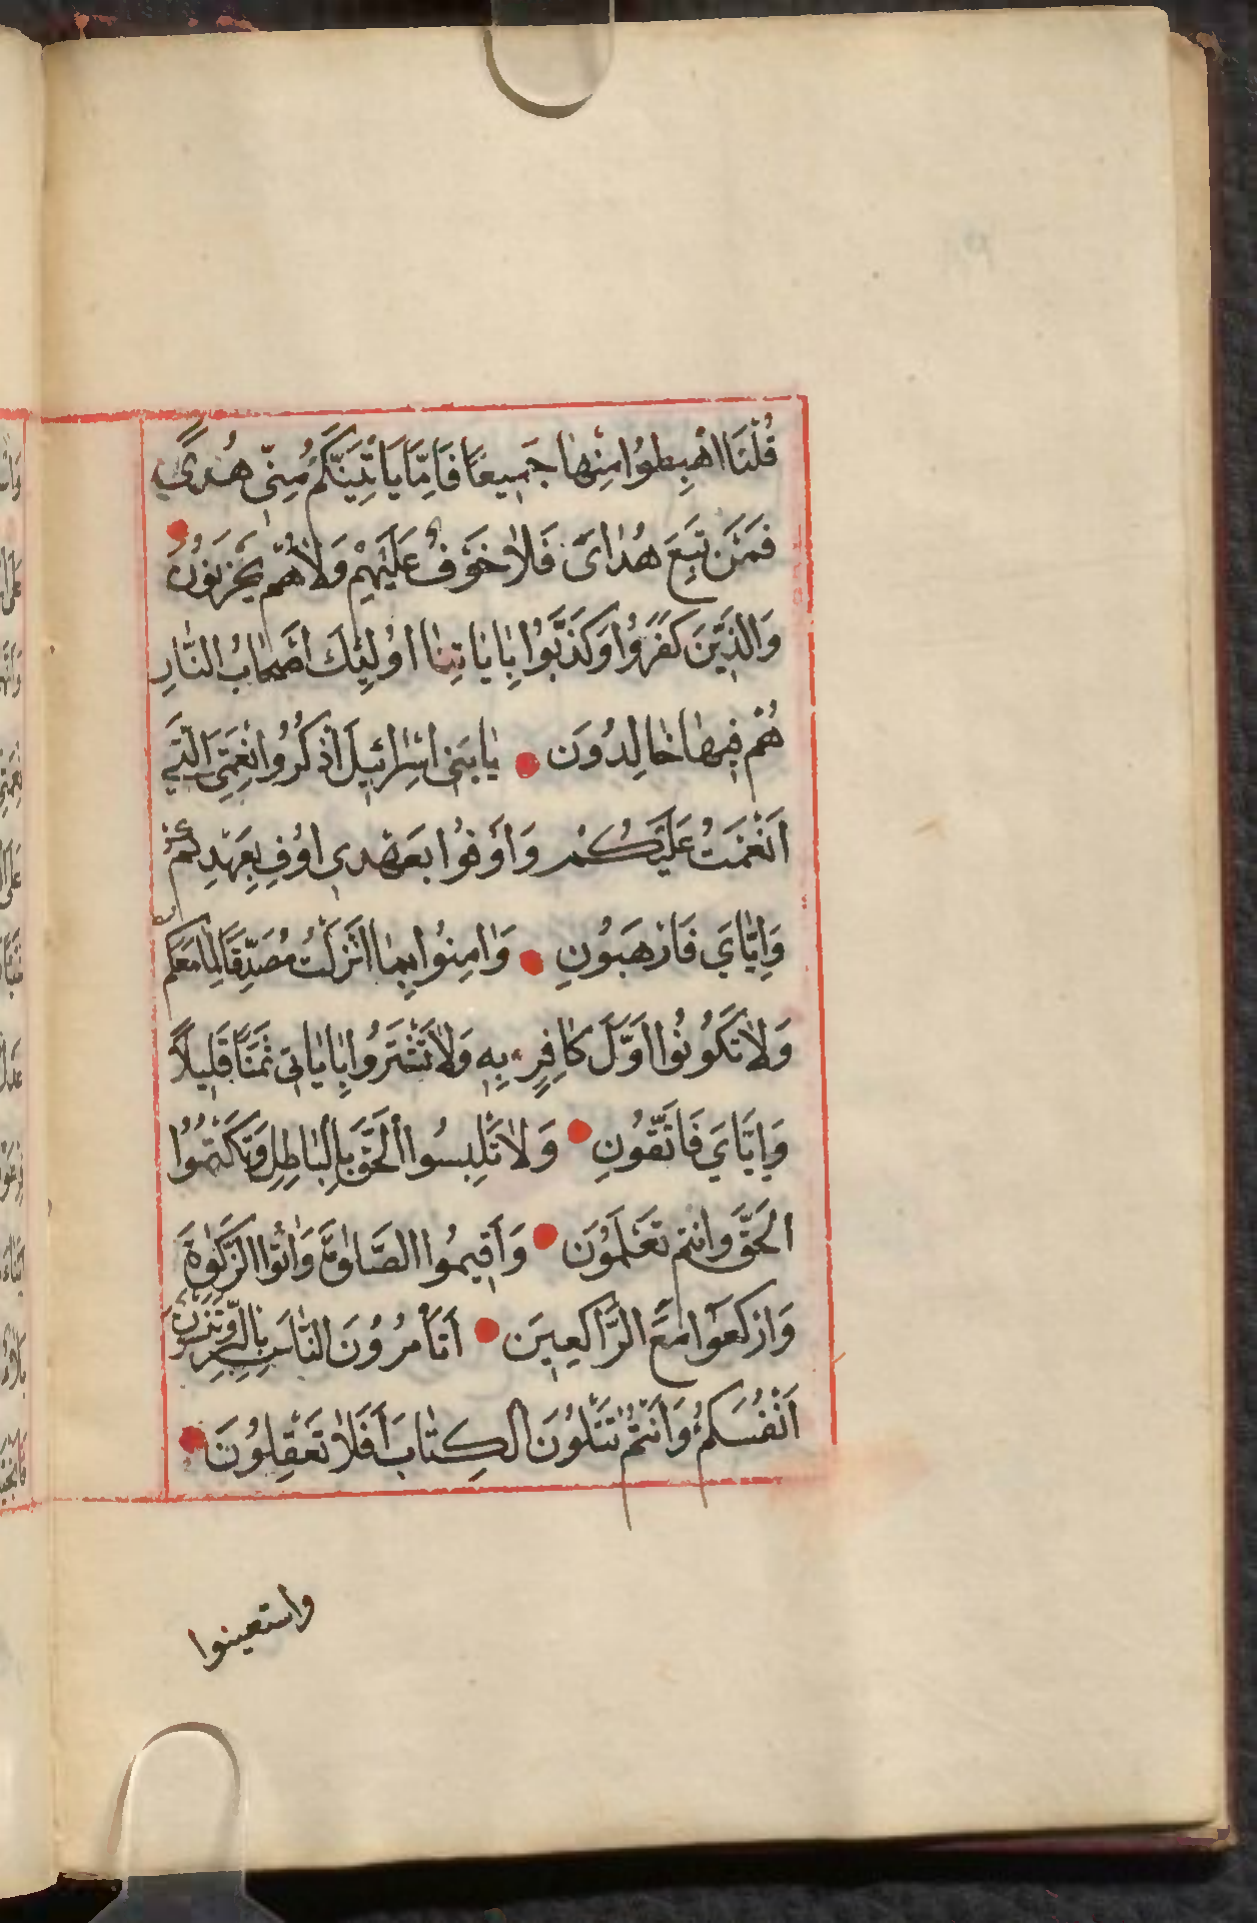 قُلْنَا اهْبِطُوا مِنْهَا جَمِيعًا فَاِمَّا يَاْتِيَنَّكُمْ مِنِّى هُدًى
فَمَنْ تَبِعَ هُدَاىَ فَلَا خَوْفٌ عَلَيْهِمْ وَلَا هُمْ يَحْزَنُونَ
وَالَّذِينَ كَفَرُوا وَكَذَّبُوا بِايَاتِنَا اُولٰئِكَ اَصْحَابُ النَّارِ
هُمْ فِيهَا خَالِدُونَ يَا بَنِى اِسْرَائِيلَ اذْكُرُوا نِعْمَتِىَ الَّتِى
اَنْعَمْتُ عَلَيْكُمْ وَاَوْفُوا بِعَهْدِى اُوفِ بِعَهْدِكُمْ
وَاِيَّايَ فَارْهَبُونِ وَامِنُوا بِمَا اَنْزَلْتُ مُصَدِّقًا لِمَا مَعَكُمْ
وَلَا تَكُونُوا اَوَّلَ كَافِرٍ بِهِ وَلَا تَشْتَرُوا بِايَاتِى ثَمَنًا قَلِيلًا
وَاِيَّايَ فَاتَّقُونِ وَلَا تَلْبِسُوا الْحَقَّ بِالْبَاطِلِ وَتَكْتُمُوا
الْحَقَّ وَاَنْتُمْ تَعْلَمُونَ وَاَقِيمُوا الصَّلٰوةَ وَاٰتُوا الزَّكٰوةَ
وَارْكَعُوا مَعَ الرَّاكِعِينَ اَتَاْمُرُونَ النَّاسَ بِالْبِرِّ وَتَنْسَوْنَ
اَنْفُسَكُمْ وَاَنْتُمْ تَتْلُونَ الْكِتَابَ اَفَلَا تَعْقِلُونَ
واستعينوا